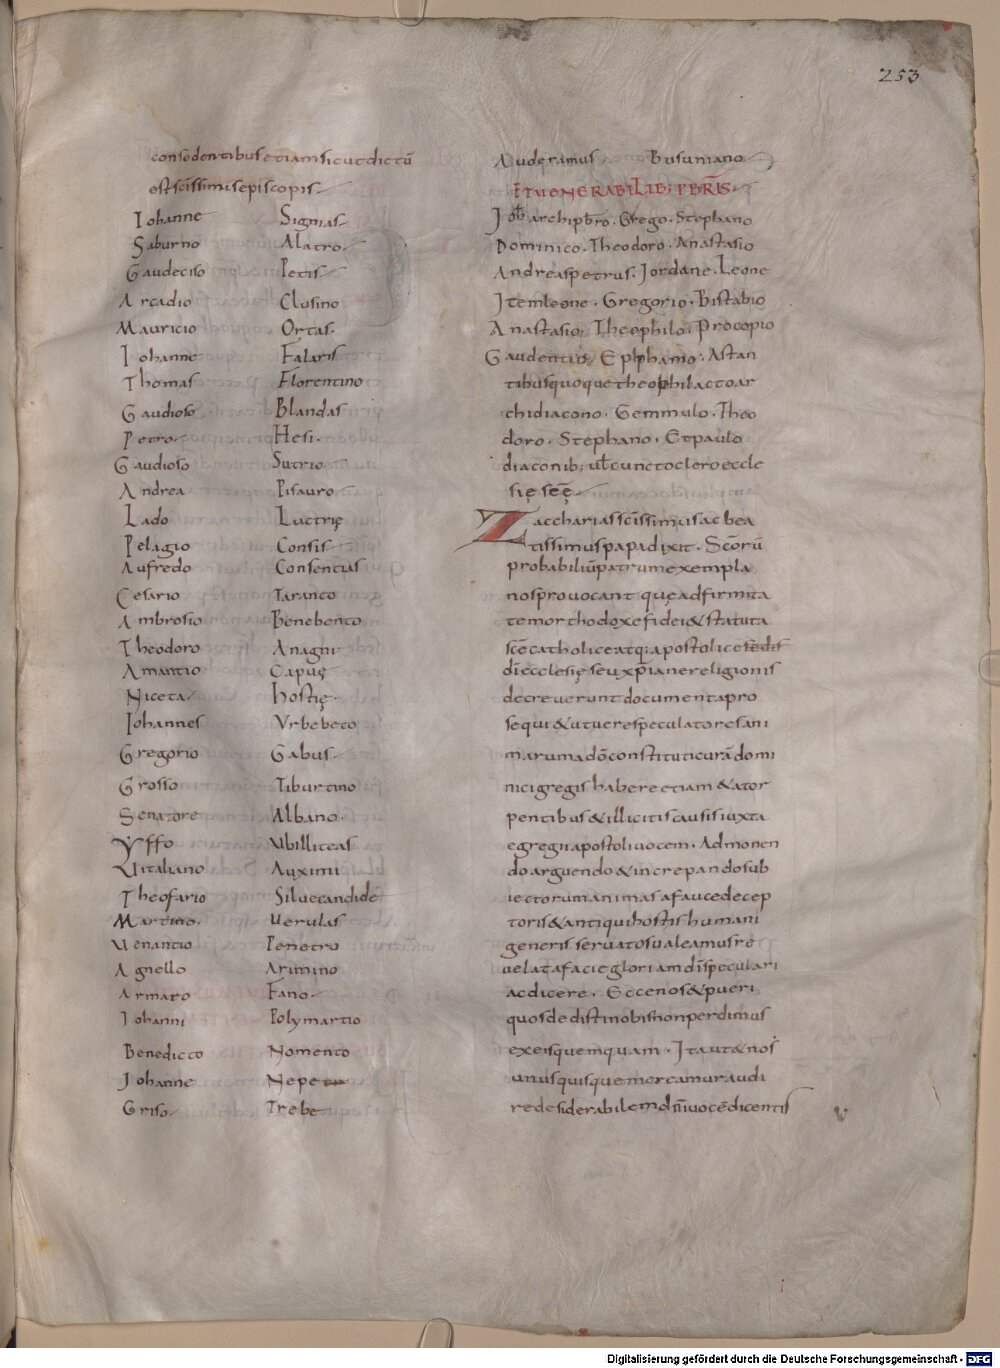 253
consedentibus etiam sicut dictū
est sc̄issimis episcopis
Iohanne Signias
Saburno Alatro
Gaudeciso Petis
Arcadio Clusino
Mauricio Ortas.
Iohanne Falaris
Thomas Florentino
Gaudioso Blandas
Petro Hesi.
Gaudioso Sutrio
Andrea Pisauro
Lado Luctrię
Pelagio Consis
Aufredo Consentias
Cesario Taranto
Ambrosio Benebento
Theodoro Anagni
Amantio Capuę
Niceta hostię.
Iohannes Vrbebeto
Gregorio Gabus
Grosso Tiburtino
Senatore Albano.
Yffo Ubilliteas
Uitaliano Auximi
Theofario Siluecandide
Martino. Uerulas
Uenantio Penetro
Agnello Arimino
Armaro Fano
Iohanni Polymartio
Benedicto Nomento
Iohanne Nepe
Griso Trebe
Auderamus Busuniano
ET UENERABILIB; PBR̄IS
Ioh̄ archipb̄ro. Grego. Stephano
Dominico. Theodoro. Anastasio
Andreas petrus. Iordane. Leone
Item leone. Gregorio. Bistabio
Anastasio; Theophilo. Procopio
Gaudentius; Epiphanio; Astan
tibus quoque theophilacto ar
chidiacono. Gemmulo. Theo
doro. Stephano. Et paulo
diaconib; ul̄ cuncto clero eccle
się sc̄ę
Zaccharias sc̄issimus ac bea
tissimus papa dixit. Sc̄orū
probabiliū patrum exempla
nos prouocant quę ad firmita
tem orthodoxe fidei & statuta
sc̄e catholice atq; apostolice sedis
dī ecclesię seu xp̄iane religionis
decreuerunt documenta pro
sequi & ut uere speculatores ani
marum a dō constituti curā domi
nici gregis habere etiam & a tor
pentibus & illicitis causis iuxta
egregii apostoli uocem. Admonen
do arguendo & increpando sub
iectorum animas a fauce decep
toris & antiqui hostis humani
generis seruatos ualeamus re
uelata facie gloriam dī speculari
ac dicere. Ecce nos & pueri
quos dedisti nobis non perdimus
ex eis quemquam. Ita ut & nos
unusquisque mereamur audi
re desiderabilem dn̄i uocē dicentis
Digitalisierung gefördert durch die Deutsche Forschungsgemeinschaft - DFG